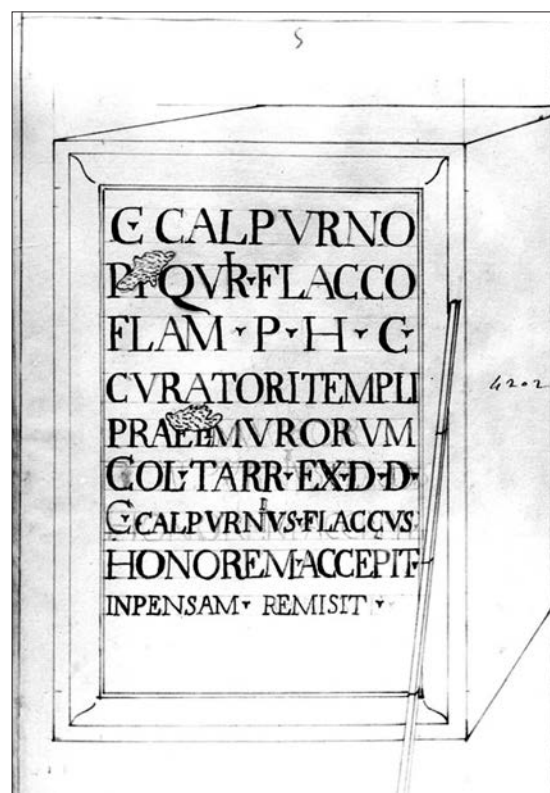 5
C CALPVRNO
P F QVIR·FLACCO
FLAM · P · H · C
CVRATORI TEMPLI
PRAEF MVRORVM
COL·TARR·EX·D·D·
C CALPVRNIVS·FLACCVS
HONOREM·ACCEPIT·
INPENSAM · REMISIT ·
4202